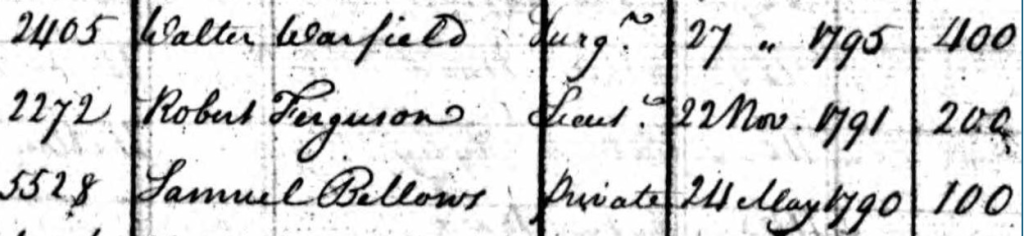 2405 Walter Warfield Surg.n 27 " 1795 400
2272 Robert Ferguson Lieut. 22 Nov. 1791 200
5528 Samuel Bellows Private 24 May 1790 100